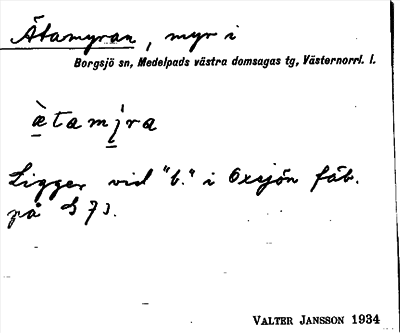 Ätamyran, myr i
Borgsjö sn, Medelpads västra domsagas tg, Västernorrl. l.
ætamjra
Ligger vid "b." i Oxsjön fäb.
på G 73.
VALTER JANSSON 1934